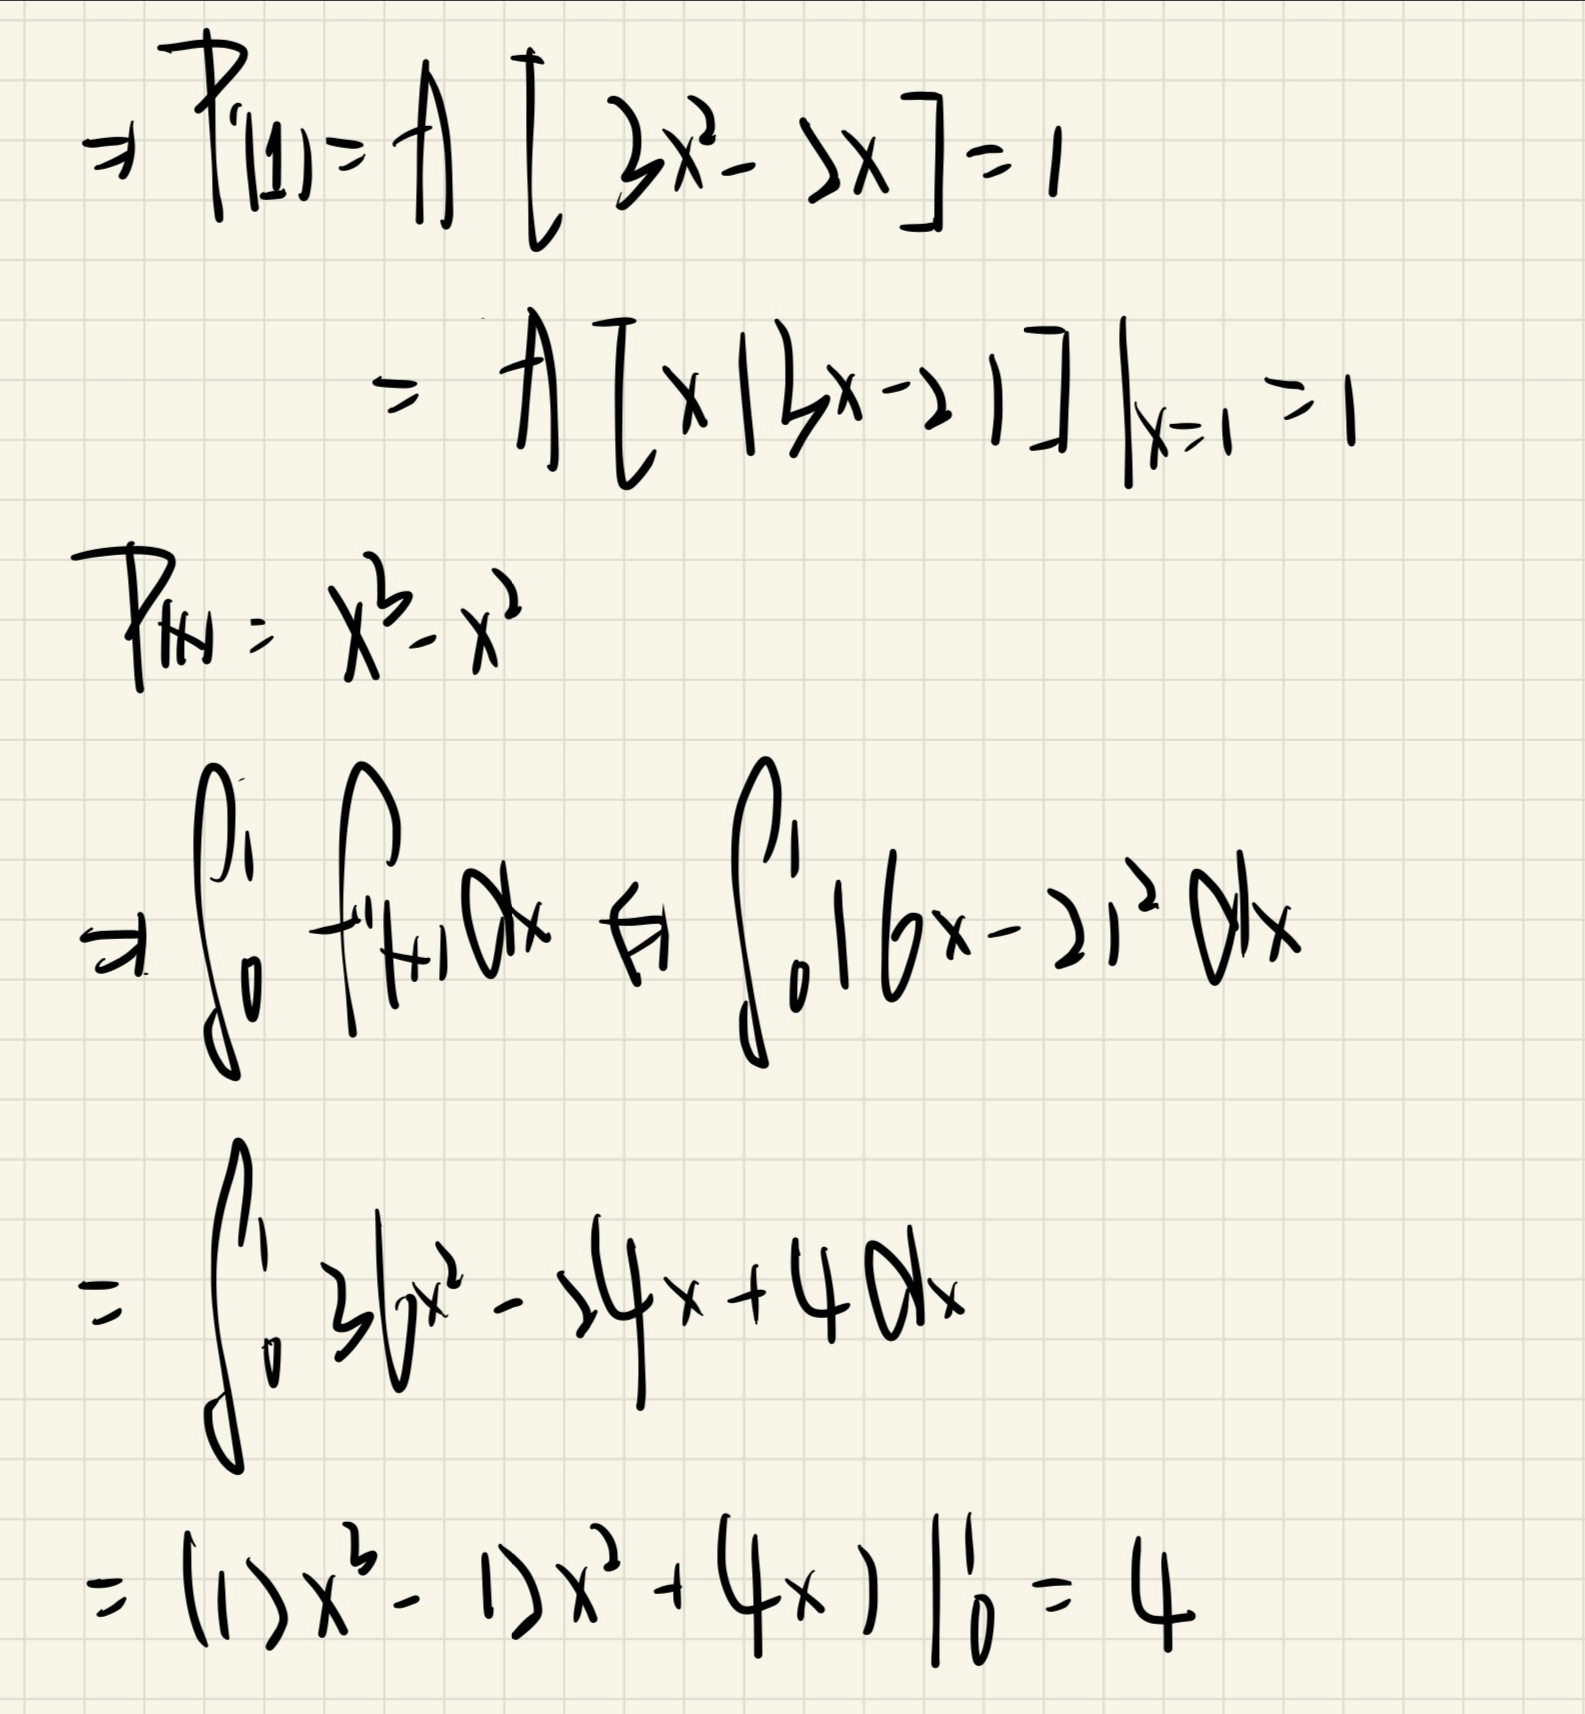 ⇒ P'(1) = A [ 3x² - 2x ] = 1
= A [ x(3x - 2) ] |ₓ₌₁ = 1
P(x) = x³ - x²
⇒ ∫₀¹ f''(x) dx ⇔ ∫₀¹ (6x - 2)² dx
= ∫₀¹ 36x² - 24x + 4 dx
= (12x³ - 12x² + 4x) |₀¹ = 4